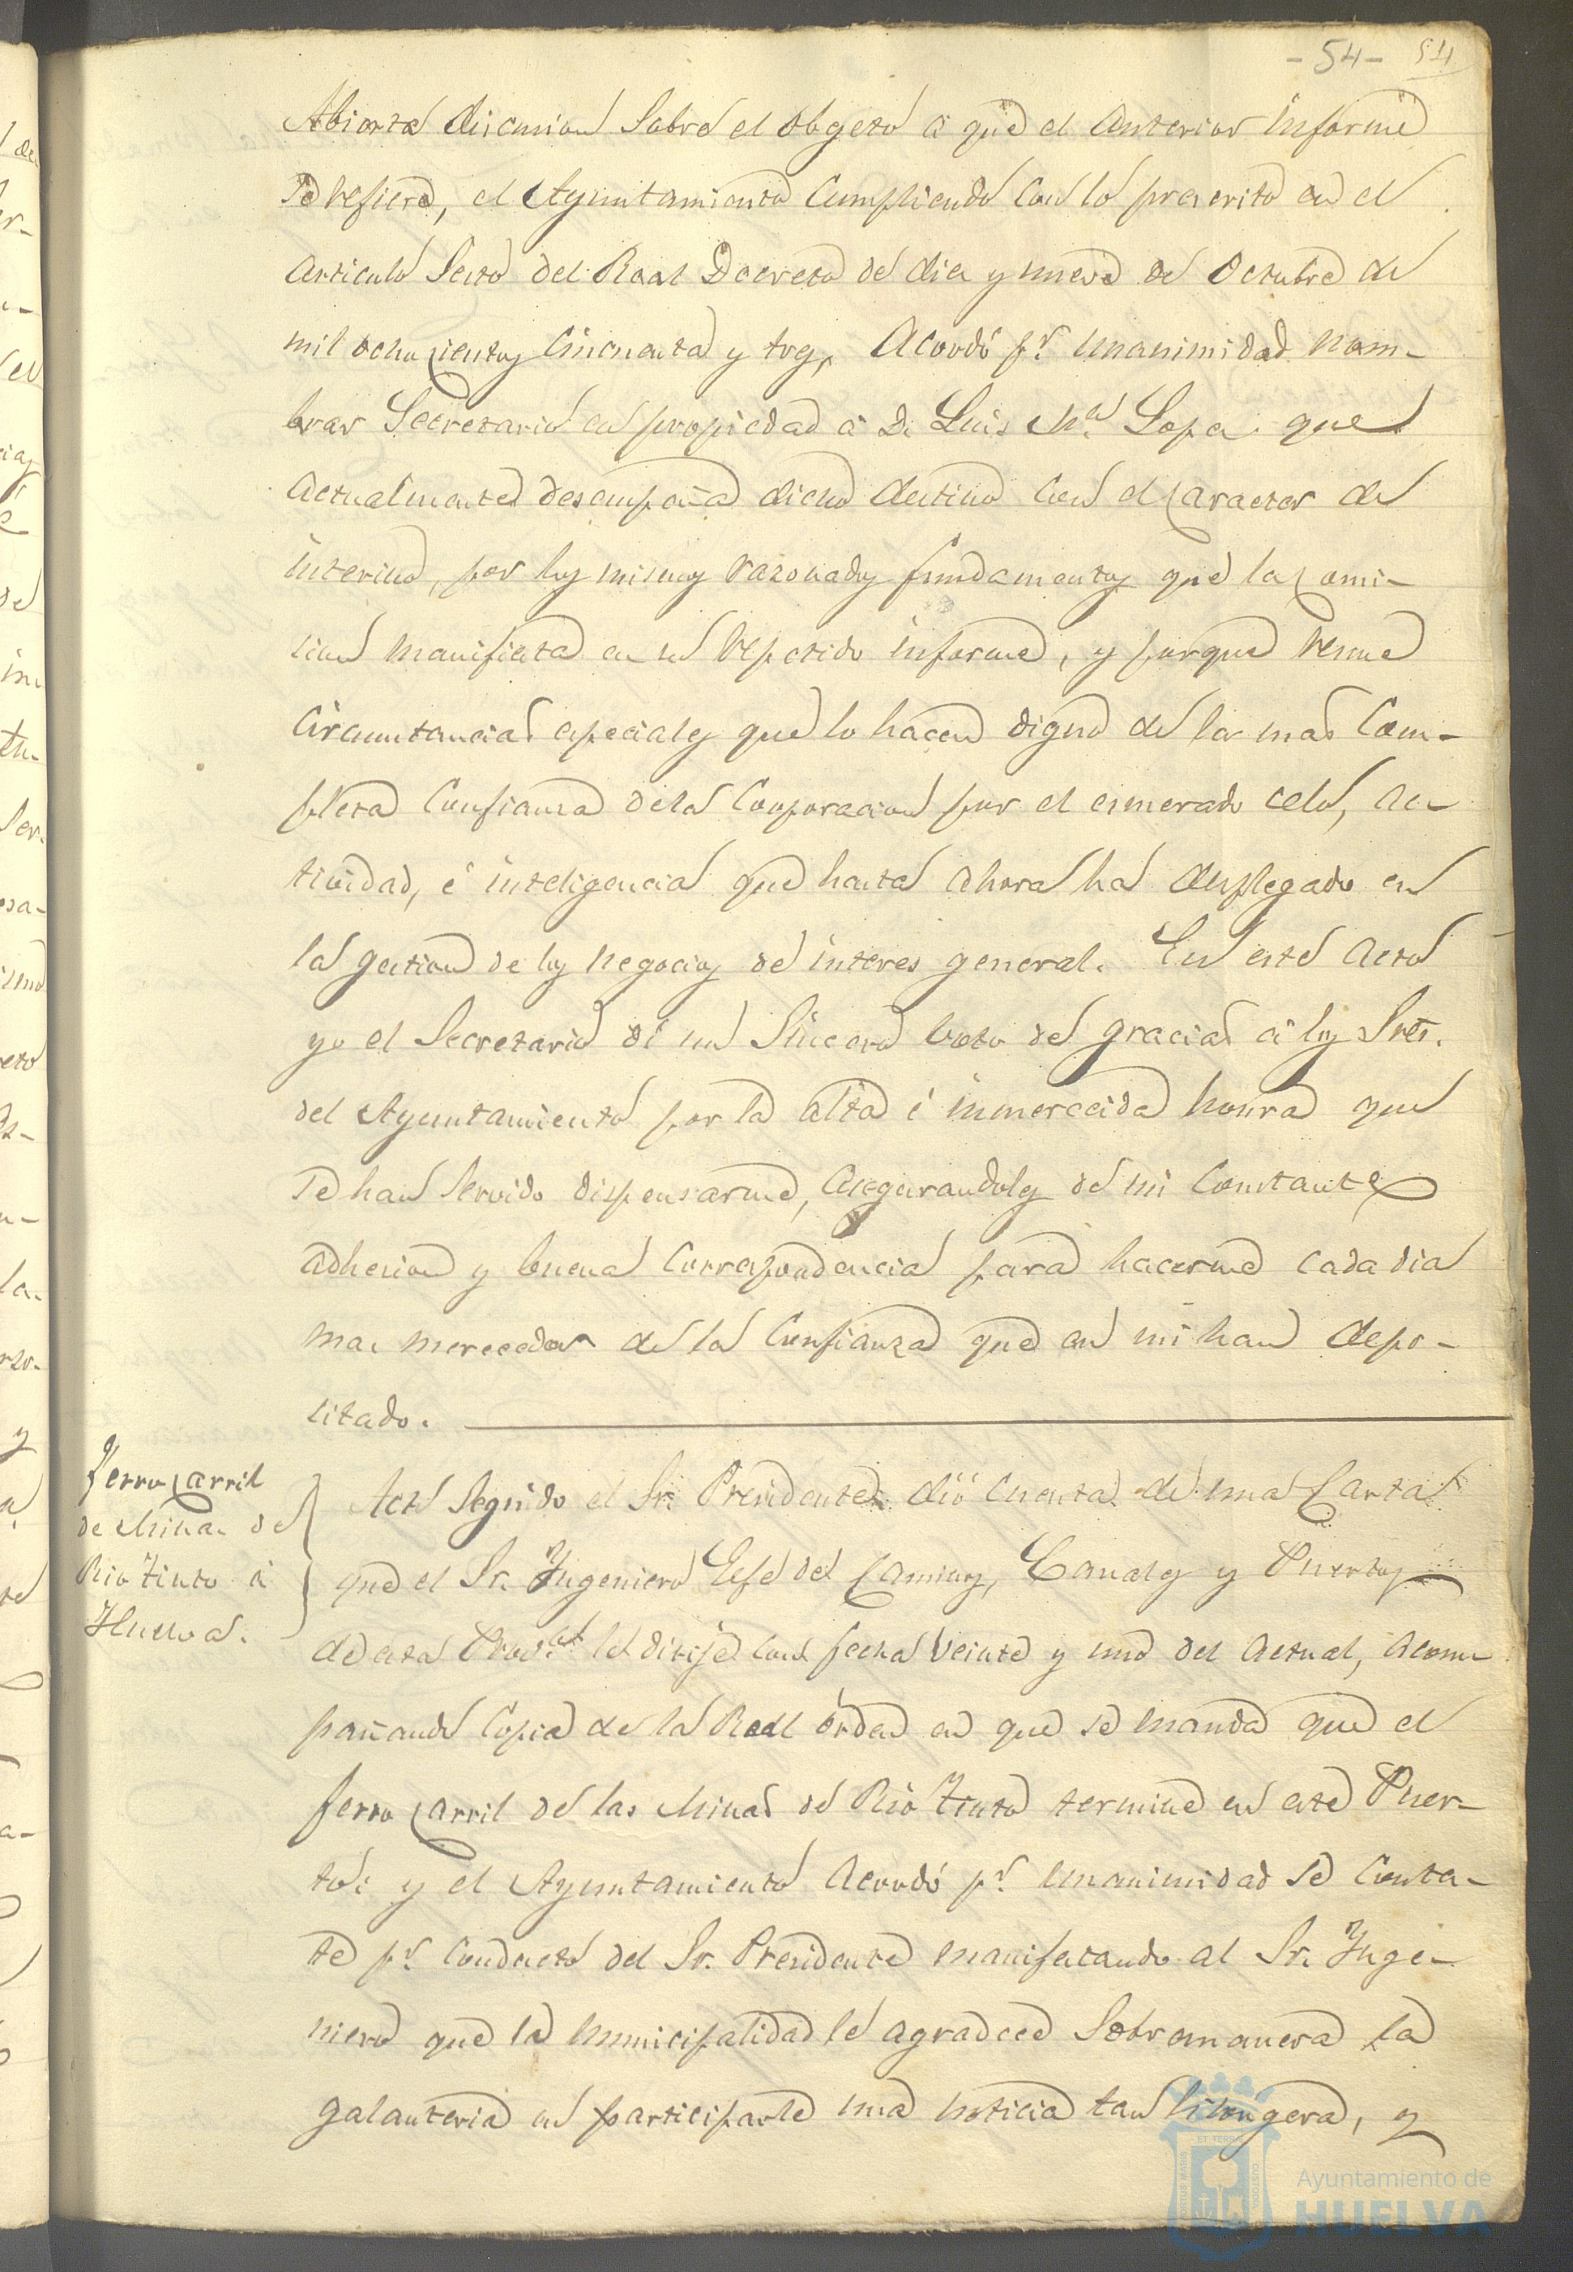 -54- 54
Abierta discusion sobre el obgeto á que el anterior informe
se refiere, el Ayuntamiento cumpliendo con lo prescrito en el
articulo sesto del Real Decreto de diez y nueve de Octubre de
mil ochocientos cincuenta y tres, acordó pr. unanimidad nom-
brar Secretario en propiedad á D. Luis Ma. Lopez que
actualmente desempeña dicho destino con el caracter de
interino, por los mismos razonados fundamentos que la comi-
sion manifiesta en su repetido informe, y porque reune
circunstancias especiales que lo hacen digno de la mas com-
pleta confianza de la Corporacion por el esmerado celo, ac-
tividad, é inteligencia que hasta ahora ha desplegado en
la gestion de los negocios de interes general. En este acto
yo el Secretario dí un sincero voto de gracias á los Sres.
del Ayuntamiento por la alta é inmerecida honra que
se han servido dispensarme, asegurandoles de mi constante
adhesion y buena correspondencia para hacerme cada dia
mas merecedor de la confianza que en mi han depo-
sitado.
Ferro carril
de Minas de
Rio Tinto á
Huelva.
Acto seguido el Sr. Presidente dió cuenta de una carta
que el Sr. Ingeniero Gefe de Caminos, Canales y Puertos
de esta Prova. le dirije con fecha veinte y uno del actual, acom-
pañando copia de la Real órden en que se manda que el
ferro carril de las Minas de Rio Tinto termine en este Puer-
to: y el Ayuntamiento acordó pr. unanimidad se contes-
te pr. conducto del Sr. Presidente manifestando al Sr. Inge-
niero que la municipalidad le agradece sobremanera la
galanteria en participarle una noticia tan lisongera, y
Ayuntamiento de
HUELVA